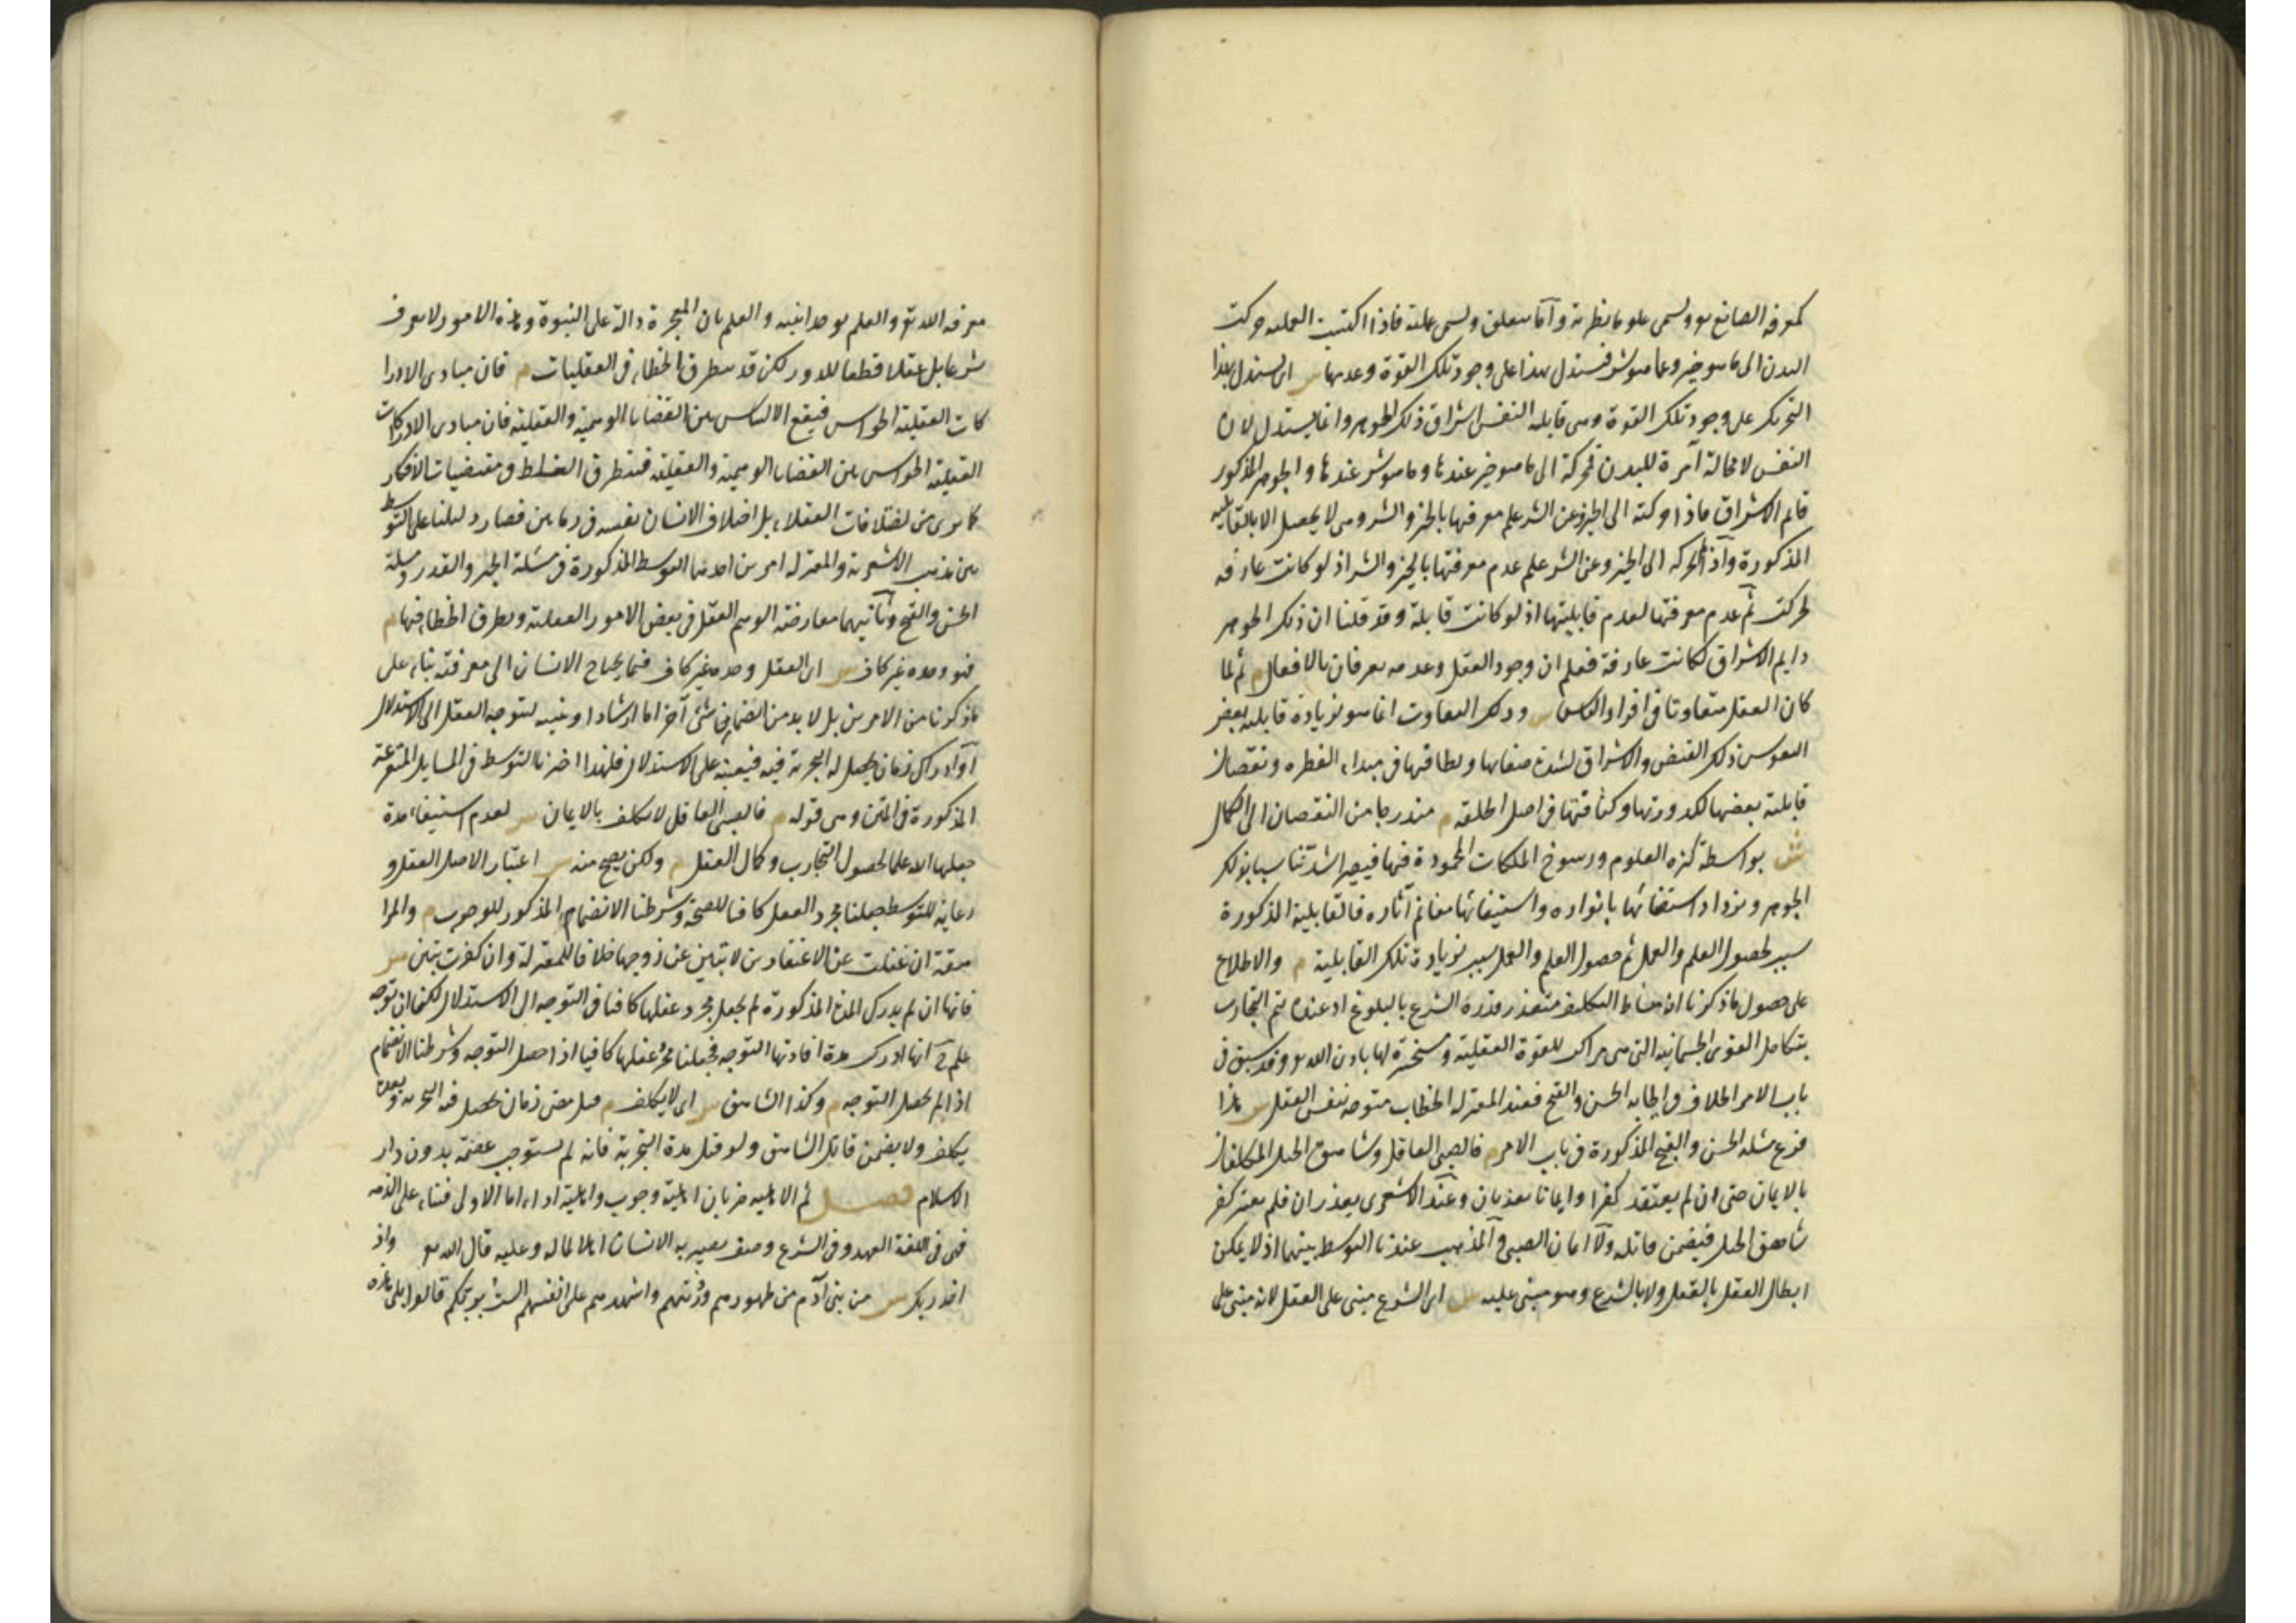 كمعرفة الصانع تع وتسمى علوما نظرية وإما يتعلق وتسمى عملية فاذا اكتسبت العملية حركت
البدن الى ما هو خير وعما هو شر فيستدل بهذا على وجود تلك القوة وعدمها ش اى يستدل بهذا
التحريك على وجود تلك القوة وهى قابلية النفس اشراق ذلك الجوهر وانما يستدل لان
النفس لا محالة آمرة للبدن محركة الى ما هو خير عندها وما هو شر عندها والجوهر المذكور
دائم الاشراق فاذا حركته الى الخير وعن الشر علم معرفتها بالخير والشر وهى لا يحصل الا بالقابلية
المذكورة واذا لم يحركه الى الخير وعن الشر علم عدم معرفتها بالخير والشر اذ لو كانت عارفة
لحركت ثم عدم معرفتها لعدم قابليتها اذ لو كانت قابلة وقد قلنا ان ذلك الجوهر
دايم الاشراق لكانت عارفة فعلم ان وجود العقل وعدمه يعرفان بالافعال م ثم لما
كان العقل متفاوتا فى افراد الناس ش وذلك التفاوت انما هو لزيادة قابلية بعض
النفوس ذلك الفيض والاشراق لشدة صفائها ولطافتها فى مبداء الفطرة ونقصان
قابلية بعضها لكدورتها وكثافتها فى اصل الخلقة م متدرجا من النقصان الى الكمال
ش بواسطة كثرة العلوم ورسوخ الملكات المحمودة فيها فيصير اشد تناسبا بذلك
الجوهر ويزداد استضائتها بانواره واستيفائها مغانم آثاره فالقابلية المذكورة
سبب لحصول العلم والعمل ثم حصول العلم والعمل سبب لزيادة تلك القابلية م والاطلاع
على حصول ما ذكرنا انه مناط التكليف متعذر قدره الشرع بالبلوغ اذ عنده يتم التجارب
بتكامل القوى الجسمانية التى هى مراكب للقوة العقلية ومسخرة لها باذن الله تع وقد سبق فى
باب الامر الخلاف فى ايجابه الحسن والقبح فعند المعتزلة الخطاب متوجه بنفس العقل ش هذا
فرع مسئلة الحسن والقبح المذكورة فى باب الامر م فالصبى العاقل وشاهق الجبل المكلفان
بالايمان حتى ان لم يعتقد كفرا وايمانا يعذبان وعند الاشعرى يعذران فلم يعتبر كفر
شاهق الجبل فيضمن قاتله ولا ايمان الصبى والمذهب عندنا التوسط بينهما اذ لا يمكن
ابطال العقل بالعقل ولا بالشرع وهو مبنى عليه ش اى الشرع مبنى على العقل لانه مبنى على
معرفة الله تع والعلم بوحدانيته والعلم بان المعجزة دالة على النبوة وهذه الامور لا يعرف
شرعا بل عقلا قطعا للدور لكن قد يتطرق الخطاء فى العقليات م فان مبادى الادرا
كات العقلية الحواس فيقع الالتباس بين القضايا الوهمية والعقلية فان مبادى الادراكات
العقلية الحواس بين القضايا الوهمية والعقلية فيتطرق الغلط فى مقتضيات الافكار
كما ترى من اختلافات العقلاء بل اختلاف الانسان نفسه فى زمانين فصار دليلنا على التوسط
بين مذهب الاشعرية والمعتزلة امرين احدهما التوسط المذكورة فى مسئلة الجبر والقدر ومسئلة
الحسن والقبح وثانيهما معارضة الوهم العقل فى بعض الامور العقلية وتطرق الخطاء فيها م
فهو وحده غير كاف ش اى العقل وحده غير كاف فيما يحتاج الانسان الى معرفته بناء على
ما ذكرنا من الامرين بل لا بد من انضمام شئ آخر اما ارشاد او تنبيه ليتوجه العقل الى الاستدلال
او ادراك زمان يحصل له التجربة فيه فيعينه على الاستدلال فلهذا اخترنا التوسط فى المسايل المتفرعة
المذكورة فى المتن وهى قوله م فالصبى العاقل لا يكلف بالايمان ش لعدم استيفاء مدة
جعلها الله علما لحصول التجارب وكمال العقل م ولكن يصح منه ش اعتبار الاصل العقل و
رعاية للتوسط جعلنا مجرد العقل كافيا للصحة وشرطنا الانضمام المذكور للوجوب م والمرا
هقة ان غفلت عن الاعتقادين لا تبين عن زوجها خلافا للمعتزلة وان كفرت تبين ش
فانها ان لم يدرك المدة المذكورة لم يجعل مجرد عقلها كافيا فى التوجه الى الاستدلال لكنها ان توجه
علم ح انها ادركت مدة افادتها التوجه فجعلنا مجرد عقلها كافيا اذا حصل التوجه وشرطنا الانضمام
اذا لم يحصل التوجه م وكذا الشاهق ش اى لا يكلف م قبل مضى زمان يحصل فيه التجربة وبعده
يكلف ولا يضمن قاتل الشاهق ولو قتل مدة التجربة فانه لم يستوجب عصمة بدون دار
الاسلام فصل ثم الاهلية ضربان اهلية وجوب واهلية اداء اما الاولى فبناء على الذمة
فهى فى اللغة العهد وفى الشرع وصف يصير به الانسان اهلا لما له وعليه قال الله تع واذ
اخذ ربك ش من بنى آدم من ظهورهم وذريتهم واشهدهم على انفسهم الست بربكم قالوا بلى هذه